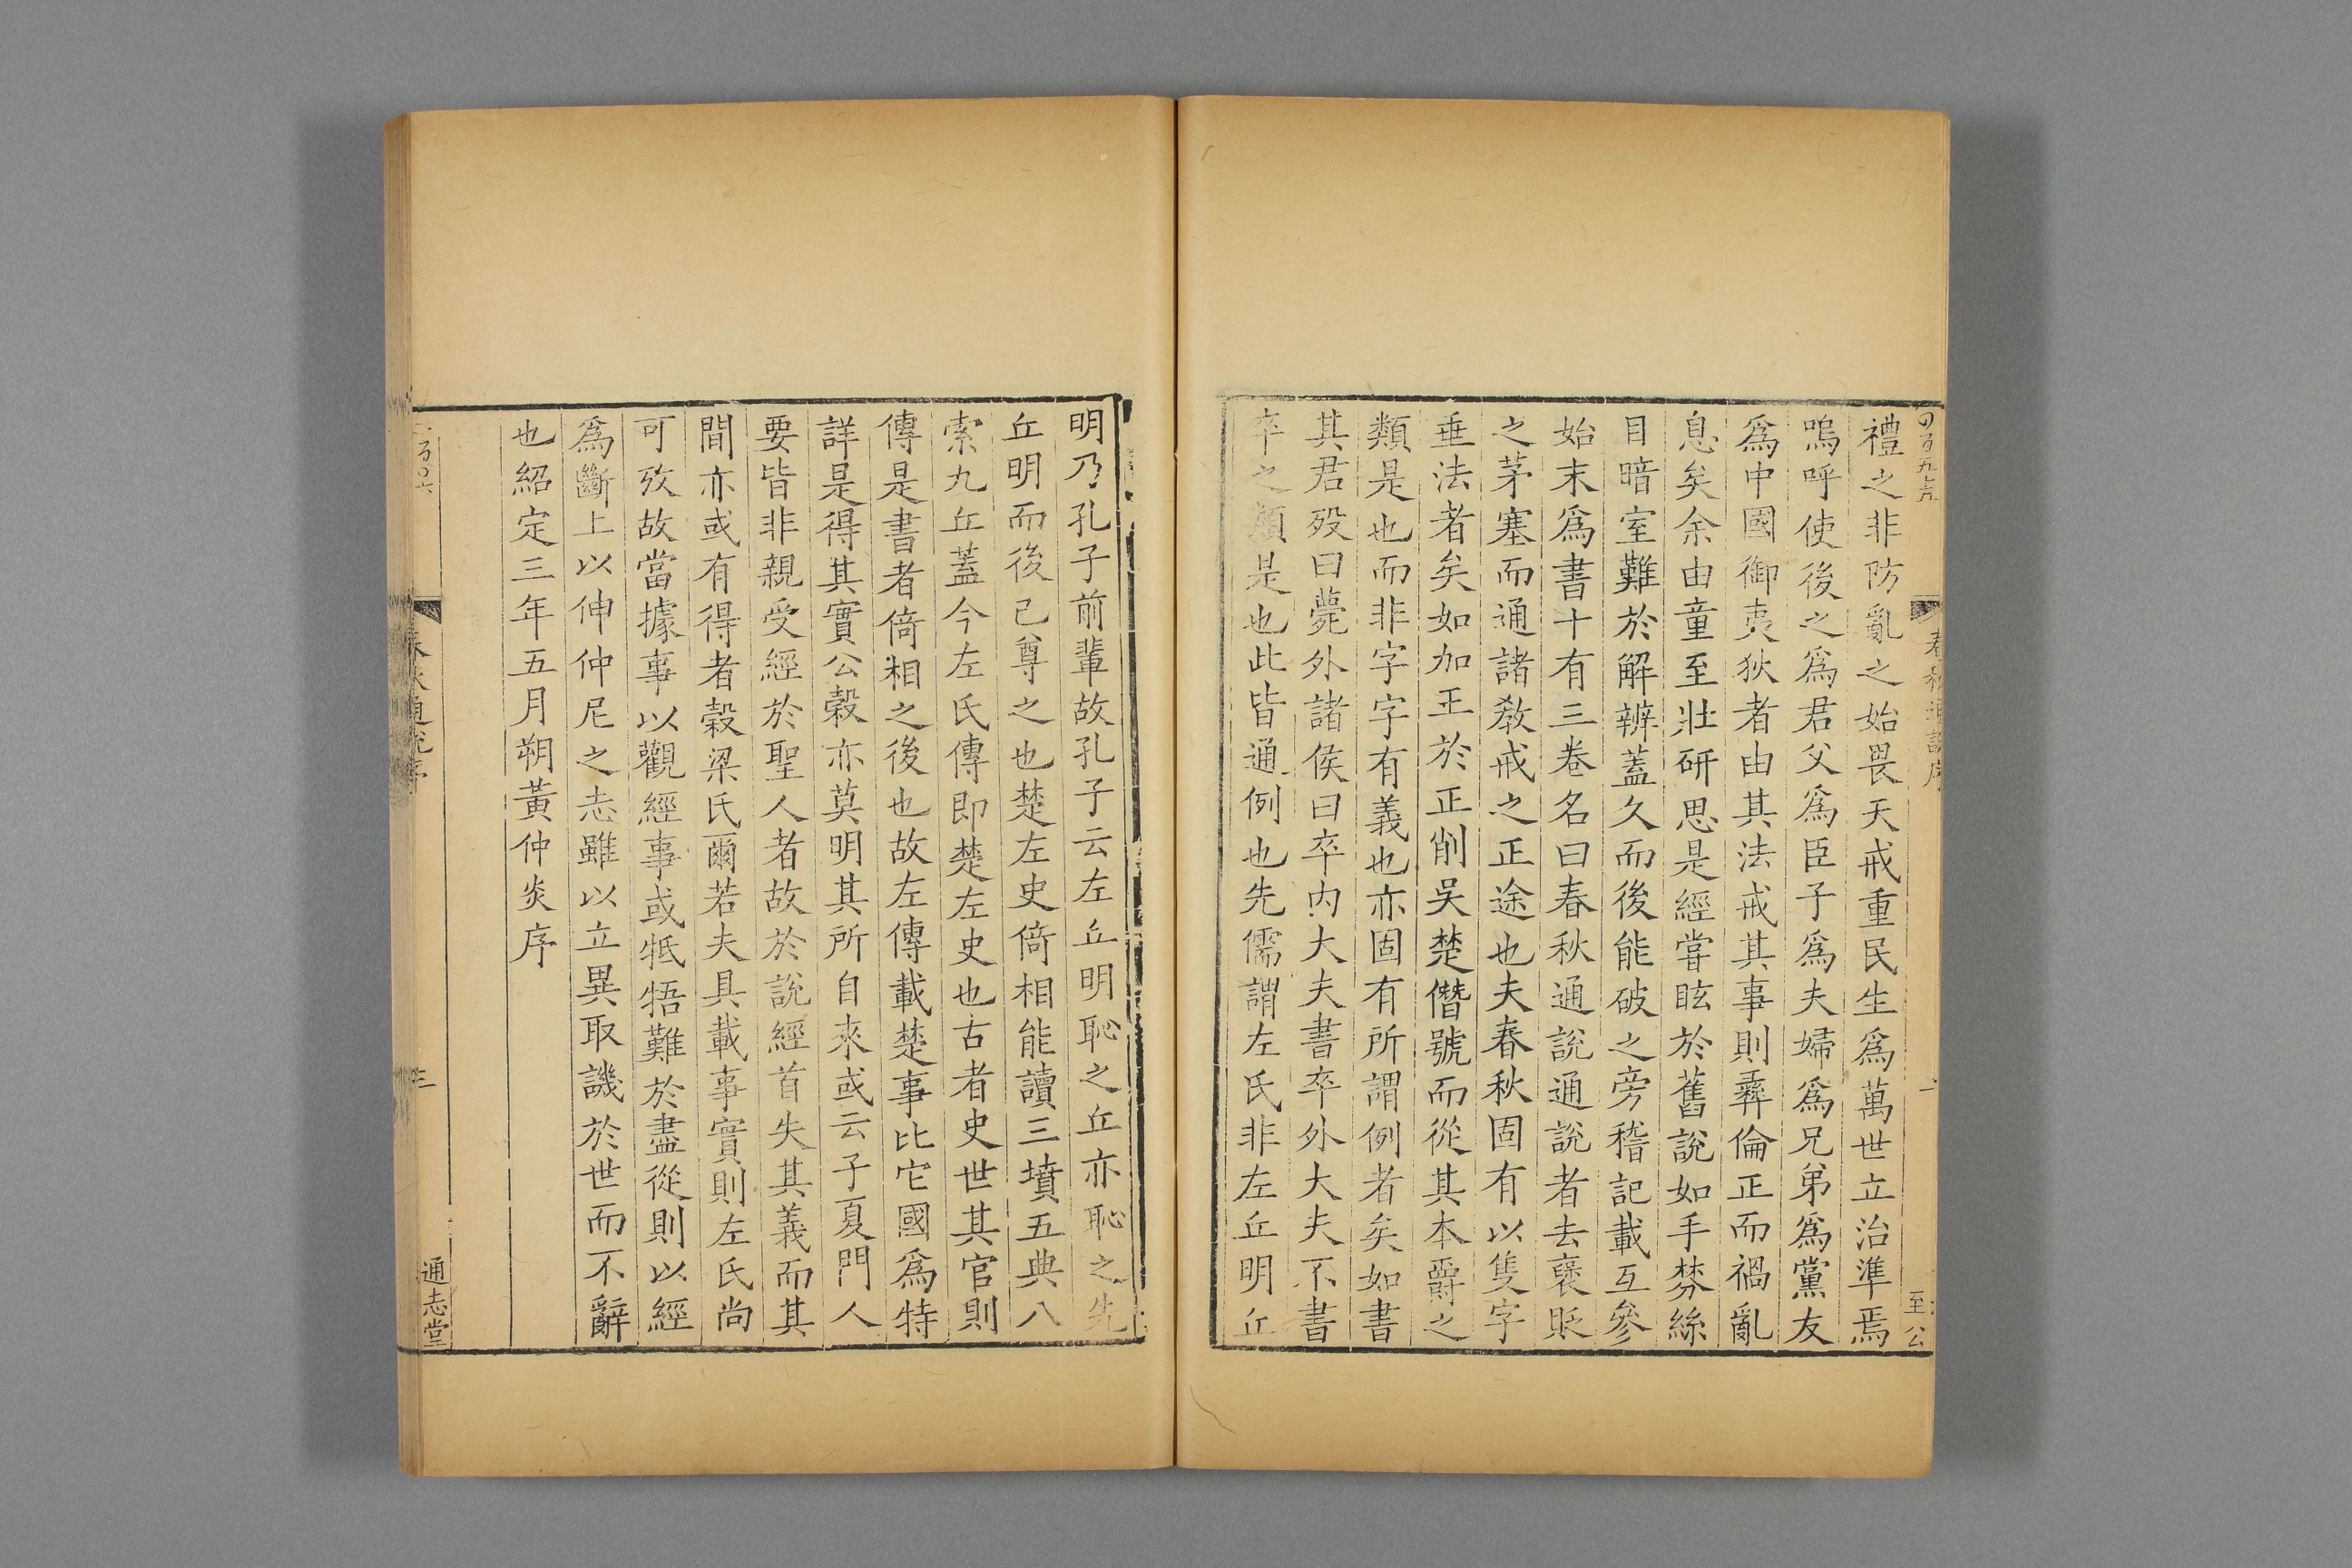 禮之非防亂之始畏天戒重民生爲萬世立治準焉
嗚呼使後之爲君父爲臣子爲夫婦爲兄弟爲黨友
爲中國御夷狄者由其法戒其事則彝倫正而禍亂
息矣余由童至壯硏思是經嘗眩於舊說如手棼絲
目暗室難於解辨蓋久而後能破之旁稽記載互參
始末爲書十有三卷名曰春秋通說通說者去襃貶
之茅塞而通諸敎戒之正途也夫春秋固有以隻字
垂法者矣如加王於正削吳楚僭號而從其本爵之
類是也而非字字有義也亦固有所謂例者矣如書
其君歿曰薨外諸侯曰卒內大夫書卒外大夫不書
卒之類是也此皆通例也先儒謂左氏非左丘明丘
春秋通說序
至公
明乃孔子前輩故孔子云左丘明恥之丘亦恥之先
丘明而後己尊之也楚左史倚相能讀三墳五典八
索九丘蓋今左氏傳卽楚左史也古者史世其官則
傳是書者倚相之後也故左傳載楚事比它國爲特
詳是得其實公穀亦莫明其所自來或云子夏門人
要皆非親受經於聖人者故於說經首失其義而其
間亦或有得者穀梁氏爾若夫具載事實則左氏尚
可攷故當據事以觀經事或牴牾難於盡從則以經
爲斷上以伸仲尼之志雖以立異取譏於世而不辭
也紹定三年五月朔黃仲炎序
春秋通說序
三
通志堂